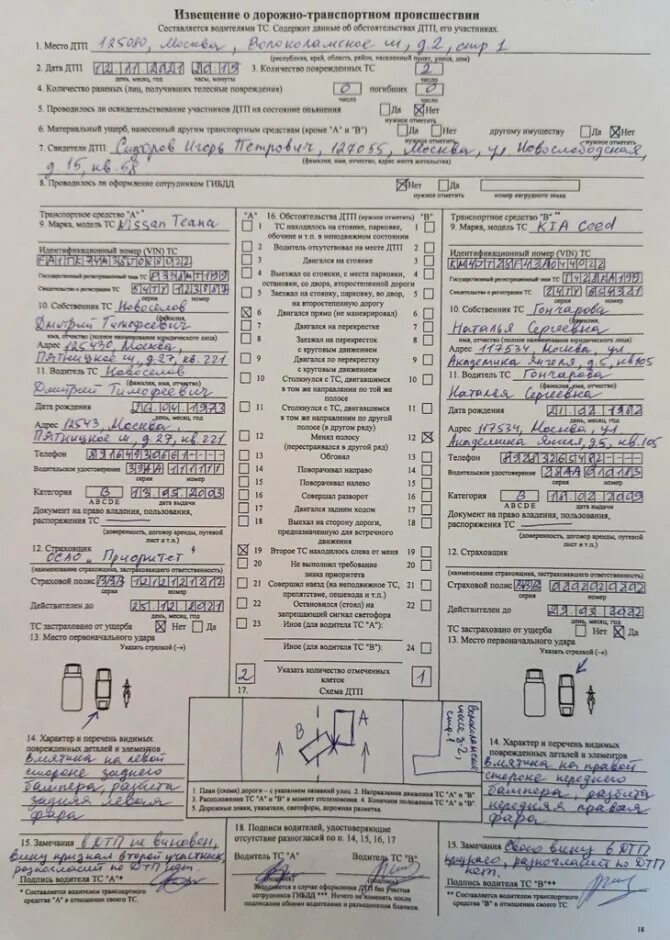 Извещение о дорожно-транспортном происшествии
Составляется водителями ТС. Содержит данные об обстоятельствах ДТП, его участниках.
1. Место ДТП 125080, Москва, Волоколамское ш, д.2, стр 1
(республика, край, область, район, населенный пункт, улица, дом)
2. Дата ДТП 12 11 2021 20 15 3. Количество поврежденных ТС 2
день, месяц, год часы, минуты число
4. Количество раненых (лиц, получивших телесные повреждения) 0 погибших 0
число число
5. Проводилось ли освидетельствование участников ДТП на состояние опьянения Да Нет
нужное отметить
6. Материальный ущерб, нанесенный другим транспортным средствам (кроме "А" и "В") Да Нет другому имуществу Да Нет
нужное отметить нужное отметить
7. Свидетели ДТП: Сидоров Игорь Петрович, 127055, Москва, ул. Новослободская,
д. 15, кв. 58
(фамилия, имя, отчество, адрес места жительства)
8. Проводилось ли оформление сотрудником ГИБДД Нет Да
нужное отметить номер нагрудного знака
Транспортное средство "А"*
9. Марка, модель ТС Nissan Teana
Идентификационный номер (VIN) ТС
Государственный регистрационный знак ТС
Свидетельство о регистрации ТС
серия номер
10. Собственник ТС Новоселов
(фамилия,
Дмитрий Тимофеевич
имя, отчество (полное наименование юридического лица)
Адрес 125430, Москва,
Пятницкое ш, д.27, кв. 221
11. Водитель ТС Новоселов
(фамилия, имя, отчество)
Дмитрий Тимофеевич
Дата рождения 1973
день, месяц, год
Адрес 12543, Москва,
Пятницкое ш, д. 27, кв. 221
Телефон 89164930661
Водительское удостоверение 111111
серия номер
Категория B 13 05 2003
ABCDE дата выдачи
Документ на право владения, пользования,
распоряжения ТС
(доверенность, договор аренды, путевой
лист и т.п.)
12. Страховщик
ОСАО "Приоритет"
(наименование страховщика, застраховавшего ответственность)
Страховой полис 12121212
серия номер
Действителен до 25 12 2021
день, месяц, год
ТС застраховано от ущерба Нет Да
13. Место первоначального удара
Указать стрелкой (→)
14. Характер и перечень видимых
поврежденных деталей и элементов
Вмятина на левой
стороне заднего
бампера, разбита
задняя левая
фара
15. Замечания в ДТП не виновен,
вину признал второй участник,
разногласий по ДТП нет.
Подпись водителя ТС "А"*
* Составляется водителем транспортного
средства "А" в отношении своего ТС.
"А" 16. Обстоятельства ДТП (нужное отметить) "В"
1 ТС находилось на стоянке, парковке, обочине и т.п. в неподвижном состоянии 1
2 Водитель отсутствовал на месте ДТП 2
3 Двигался на стоянке 3
4 Выезжал со стоянки, с места парковки, остановки, со двора, второстепенной дороги 4
5 Заезжал на стоянку, парковку, во двор, на второстепенную дорогу 5
6 Двигался прямо (не маневрировал) 6
7 Двигался на перекрестке 7
8 Заезжал на перекресток с круговым движением 8
9 Двигался по перекрестку с круговым движением 9
10 Столкнулся с ТС, двигавшимся в том же направлении по той же полосе 10
11 Столкнулся с ТС, двигавшимся в том же направлении по другой полосе (в другом ряду) 11
12 Менял полосу (перестраивался в другой ряд) 12
13 Обгонял 13
14 Поворачивал направо 14
15 Поворачивал налево 15
16 Совершал разворот 16
17 Двигался задним ходом 17
18 Выехал на сторону дороги, предназначенную для встречного движения 18
19 Второе ТС находилось слева от меня 19
20 Не выполнил требование знака приоритета 20
21 Совершил наезд (на неподвижное ТС, препятствие, пешехода и т.п.) 21
22 Остановился (стоял) на запрещающий сигнал светофора 22
23 Иное (для водителя ТС "А"):
Иное (для водителя ТС "В"): 24
2 Указать количество отмеченных клеток 1
17. Схема ДТП
А
В
Волоколамское
шоссе д. 2,
стр. 1
1. План (схема) дороги – с указанием названий улиц. 2. Направления движения ТС "А" и "В"
3. Расположения ТС "А" и "В" в момент столкновения. 4. Конечное положение ТС "А" и "В"
5. Дорожные знаки, указатели, светофоры, дорожная разметка.
18. Подписи водителей, удостоверяющие
отсутствие разногласий по п. 14, 15, 16, 17
Водитель ТС "А" Водитель ТС "В"
(подпись) (подпись)
Заполняется в случае оформления ДТП без участия
сотрудников ГИБДД *** Ничего не изменять после
подписания обоими водителями и разъединения бланков.
Транспортное средство "В"**
9. Марка, модель ТС KIA Ceed
Идентификационный номер (VIN) ТС
Государственный регистрационный знак ТС
Свидетельство о регистрации ТС
серия номер
10. Собственник ТС Гончарова
(фамилия,
Наталья Сергеевна
имя, отчество (полное наименование юридического лица)
Адрес 117534, Москва, ул
Академика Янгеля, д5, кв105
11. Водитель ТС Гончарова
(фамилия, имя, отчество)
Наталья Сергеевна
Дата рождения 1982
день, месяц, год
Адрес 117534, Москва, ул
Академика Янгеля, д5, кв.105
Телефон
Водительское удостоверение
серия номер
Категория B 2009
ABCDE дата выдачи
Документ на право владения, пользования,
распоряжения ТС
(доверенность, договор аренды, путевой
лист и т.п.)
12. Страховщик
(наименование страховщика, застраховавшего ответственность)
Страховой полис
серия номер
Действителен до 2022
день, месяц, год
ТС застраховано от ущерба Нет Да
13. Место первоначального удара
Указать стрелкой (→)
14. Характер и перечень видимых
поврежденных деталей и элементов
Вмятина на правой
стороне переднего
бампера, разбита
передняя правая
фара
15. Замечания Свою вину в ДТП
признаю, разногласий по ДТП
нет.
Подпись водителя ТС "В"**
** Составляется водителем транспортного
средства "В" в отношении своего ТС.
18